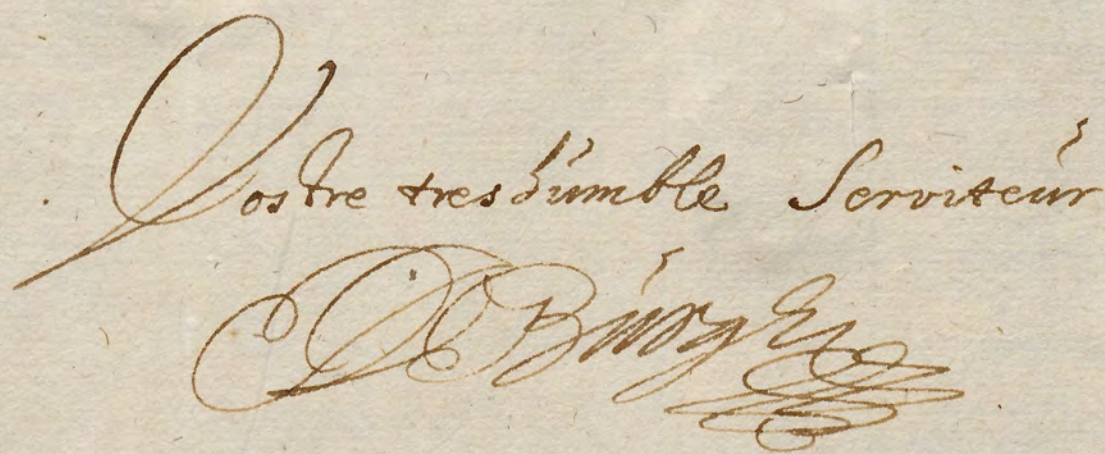 Vostre treshumble Serviteur
DBurgh